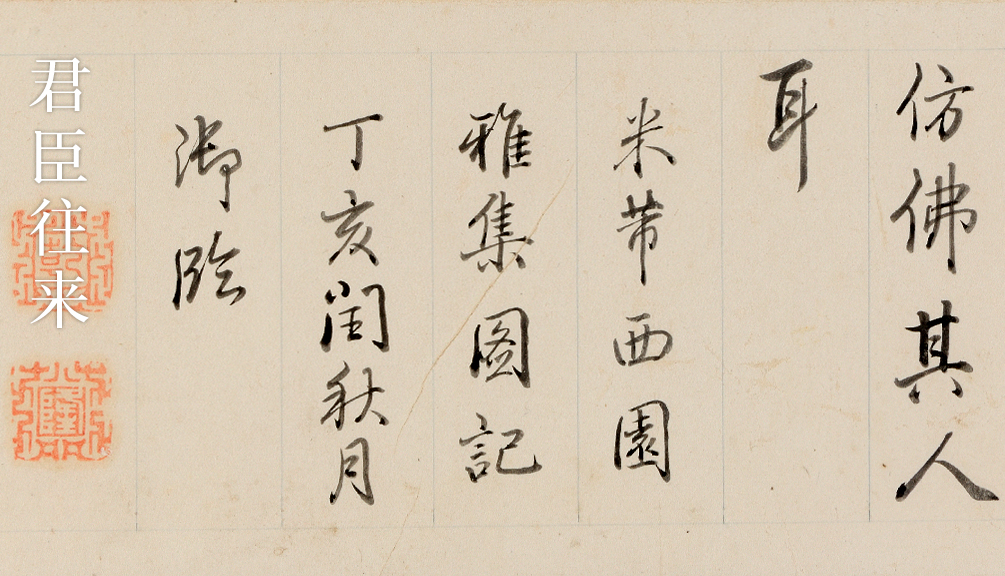 仿佛其人
耳
米芾西園
雅集圖記
丁亥閏秋月
御臨
君臣往来